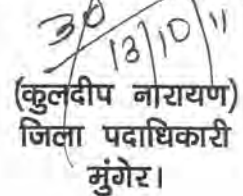 13/10/11
(कुलदीप नारायण)
जिला पदाधिकारी
मुंगेर।